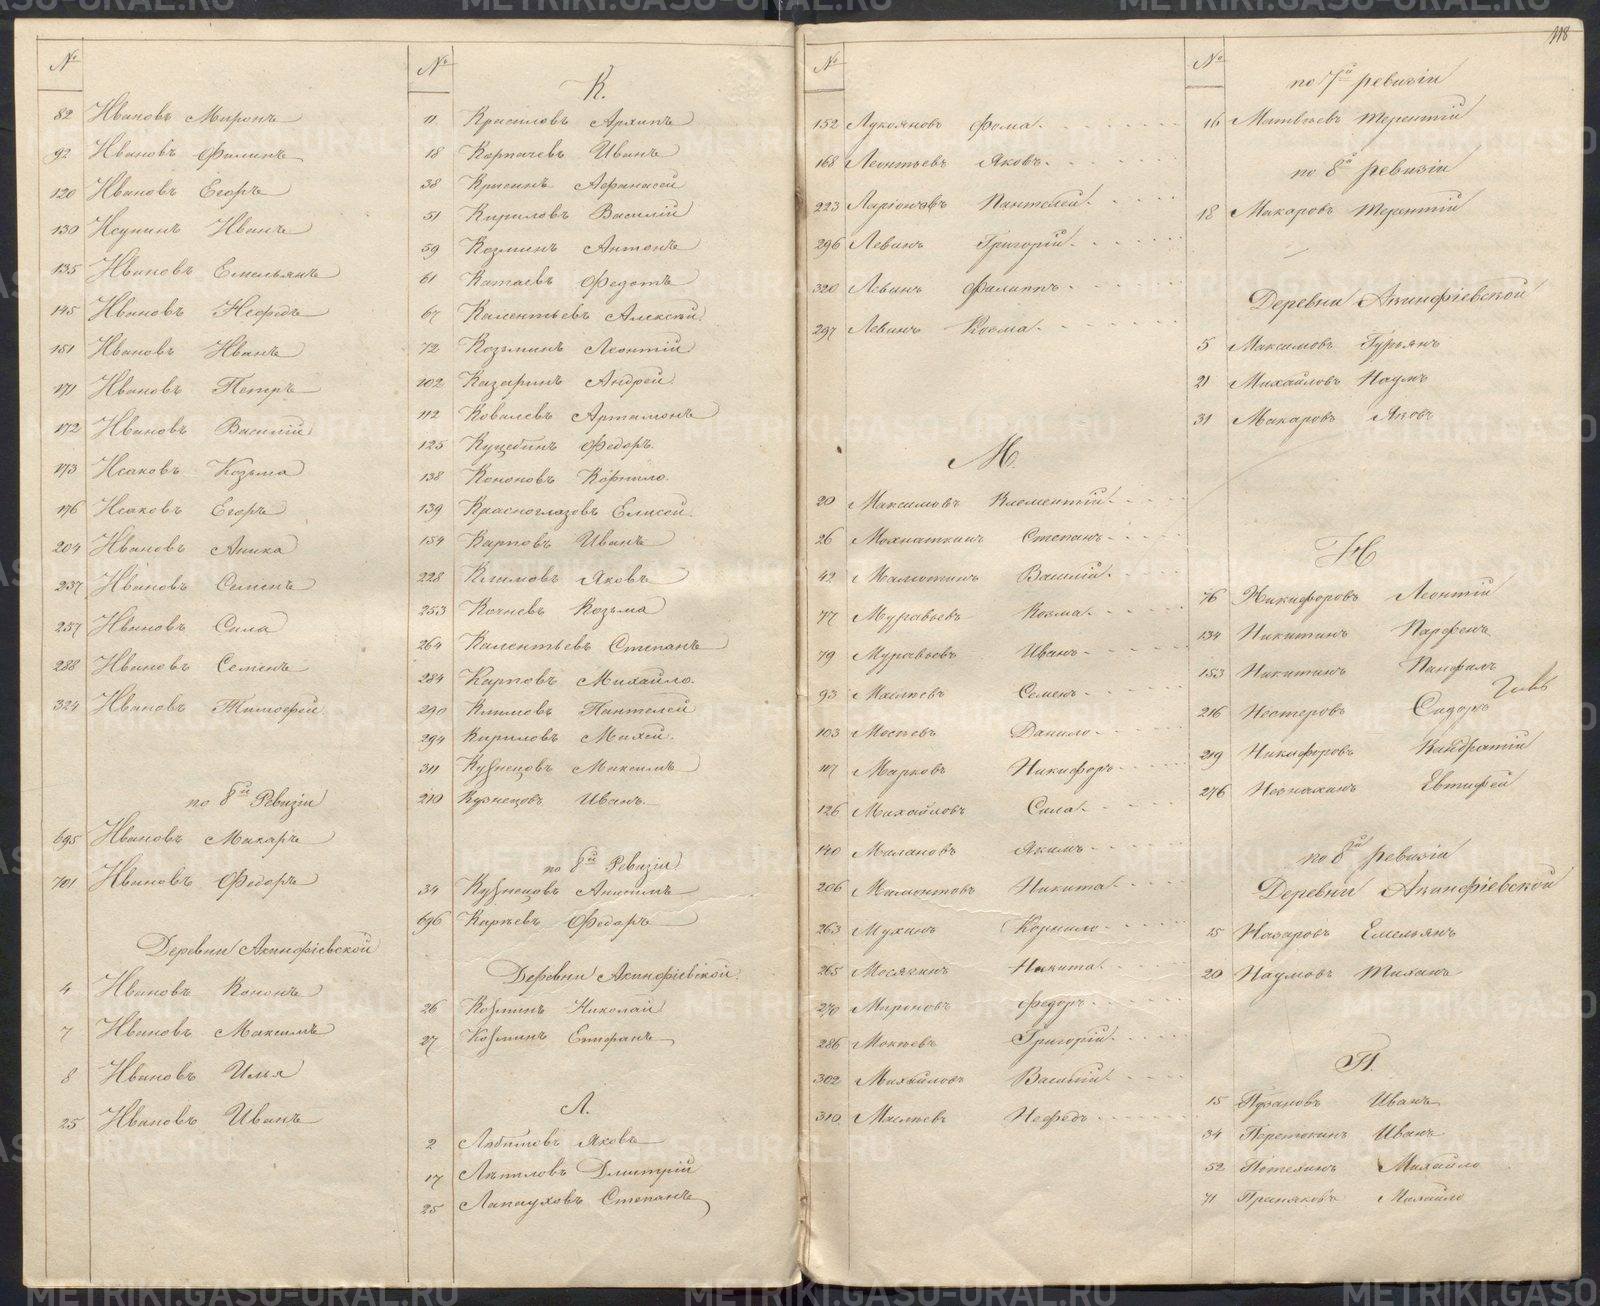 №
82 Ивановъ Миронъ
92 Ивановъ Филипъ
120 Ивановъ Егоръ
130 Исунинъ Иванъ
135 Ивановъ Емельянъ
145 Ивановъ Нефедъ
151 Ивановъ Иванъ
171 Ивановъ Петръ
172 Ивановъ Василiй
173 Исаковъ Козьма
176 Исаковъ Егоръ
204 Ивановъ Аника
237 Ивановъ Семенъ
257 Ивановъ Сила
288 Ивановъ Семенъ
324 Ивановъ Тимофей
по 8й Ревизiи
695 Ивановъ Макаръ
701 Ивановъ Федоръ
Деревни Акинфiевской
4 Ивановъ Кононъ
7 Ивановъ Максимъ
8 Ивановъ Илья
25 Ивановъ Иванъ
№
К.
11 Красиловъ Архипъ
18 Корпачевъ Иванъ
38 Афанасей
51 Кириловъ Василiй
59 Козминъ Антонъ
61 Катаевъ Федотъ
67 Калентьевъ Алексѣй
72 Козьминъ Леонтiй
102 Казаринъ Андрей
112 Ковалевъ Артамонъ
125 Федоръ
138 Кононовъ Корнило
139 Красноглазовъ Елисей
154 Карповъ Иванъ
228 Климовъ Яковъ
253 Кочневъ Козьма
264 Калентьевъ Степанъ
284 Карповъ Михайло
290 Климовъ Пантелей
294 Кириловъ Михей
311 Кузнецовъ Максимъ
210 Кузнецовъ Иванъ
по 8й Ревизiи
34 Кузнецовъ Анисимъ
696 Киревъ Федоръ
Деревни Акинфiевской
26 Козминъ Николай
27 Козминъ Епифанъ
Л.
2 Любимовъ Яковъ
17 Дмитрiй
25 Лапауховъ Степанъ
№
152 Лукояновъ Фома
168 Леонтьевъ Яковъ
223 Ларiоновъ Пантелей
296 Левинъ Григорiй
320 Левинъ Филиппъ
297 Левинъ Косма
М.
20 Максимовъ Клементiй
26 Мохнаткинъ Степанъ
42 Малютинъ Василiй
77 Муравьевъ Козма
79 Муравьевъ Иванъ
93 Семенъ
103 Данило
117 Марковъ Никифоръ
126 Михайловъ Сила
140 Малановъ Якимъ
206 Мамонтовъ Никита
263 Мухинъ Корнило
265 Месягинъ Никита
270 Мироновъ Федоръ
286 Мокѣевъ Григорiй
302 Михайловъ Василiй
310 Нефедъ
118
№
по 7й ревизiи
16 Матвѣевъ Терентiй
по 8й ревизiи
18 Макаровъ Терентiй
Деревни Акинфiевской
5 Максимовъ Гурьянъ
21 Михайловъ Наумъ
31 Макаровъ Яковъ
Н
76 Никифоровъ Леонтiй
134 Никитинъ Парфенъ
153 Никитинъ Панфилъ
216 Нестеровъ Сидоръ Глѣбъ
219 Никифоровъ Кандратiй
276 Евтифей
по 8й ревизiи
Деревни Акинфiевской
15 Назаровъ Емельянъ
20 Наумовъ Тихонъ
П.
15 Пузановъ Иванъ
34 Перетокинъ Иванъ
52 Потехинъ Михайло
71 Михайло
METRIKI.GASU-URAL.RU